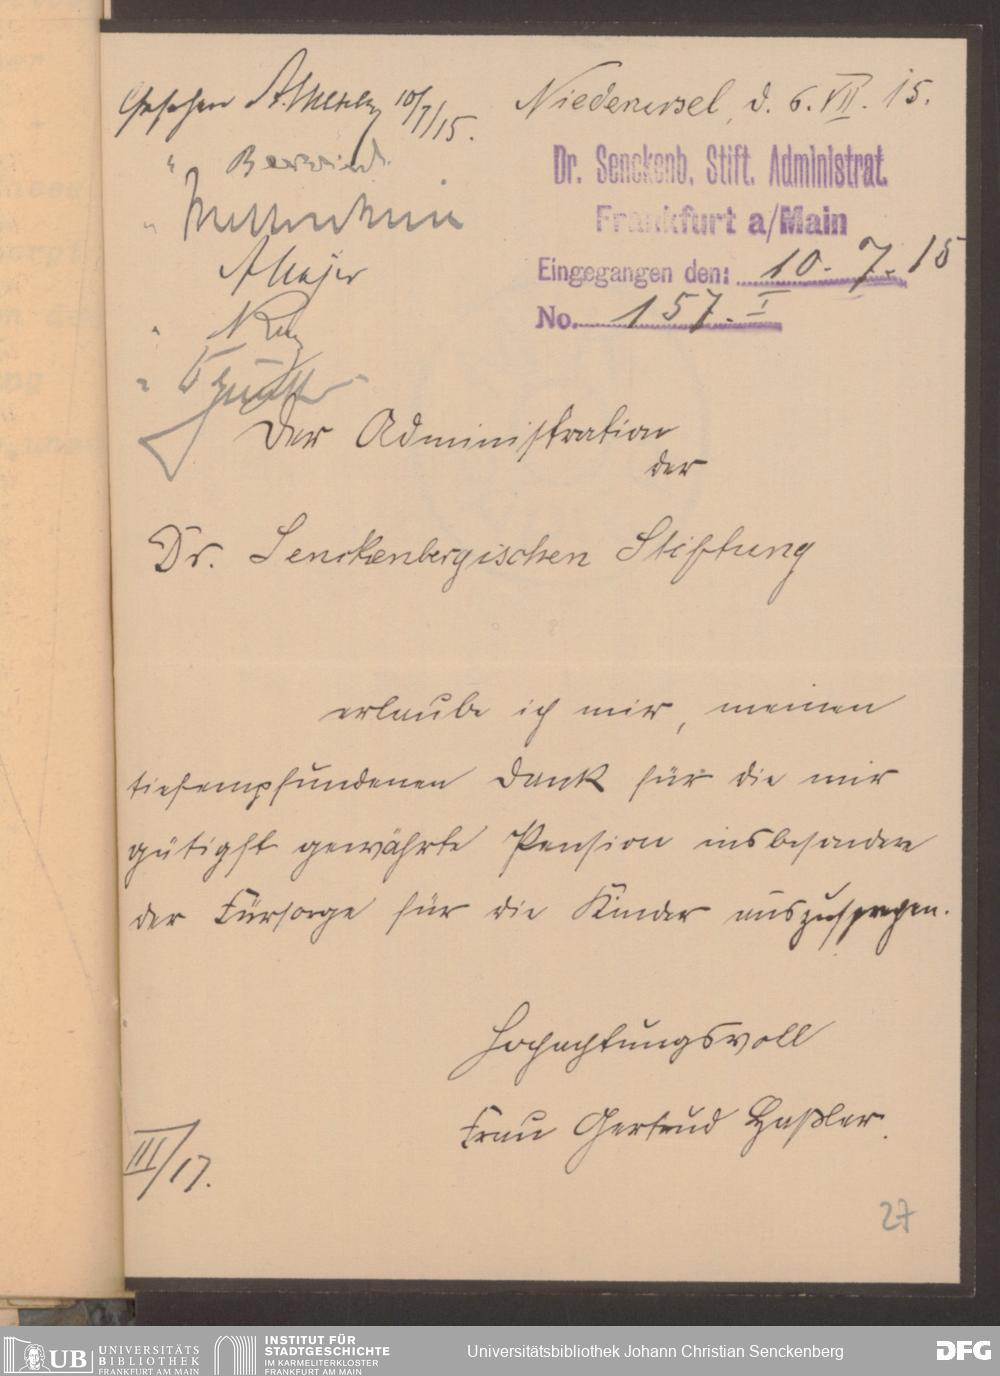 Gesehen A. Merkz 10/7/15.
Niederursel, d. 6. VII. 15.
Dr. Senckenb. Stift. Administrat.
Frankfurt a/Main
Eingegangen den: 10. 7. 15
No. 157. I
AMajer
Der Administration
der
Dr. Senckenbergischen Stiftung
erlaube ich mir, meinen
tiefempfundenen Dank für die mir
gütigst gewährte Pension insbesondere
der Fürsorge für die Kinder auszusprechen.
Hochachtungsvoll
Frau Gertrud Haßler.
III/17.
27
UB UNIVERSITÄTS
BIBLIOTHEK
FRANKFURT AM MAIN
INSTITUT FÜR
STADTGESCHICHTE
IM KARMELITERKLOSTER
FRANKFURT AM MAIN
Universitätsbibliothek Johann Christian Senckenberg
DFG